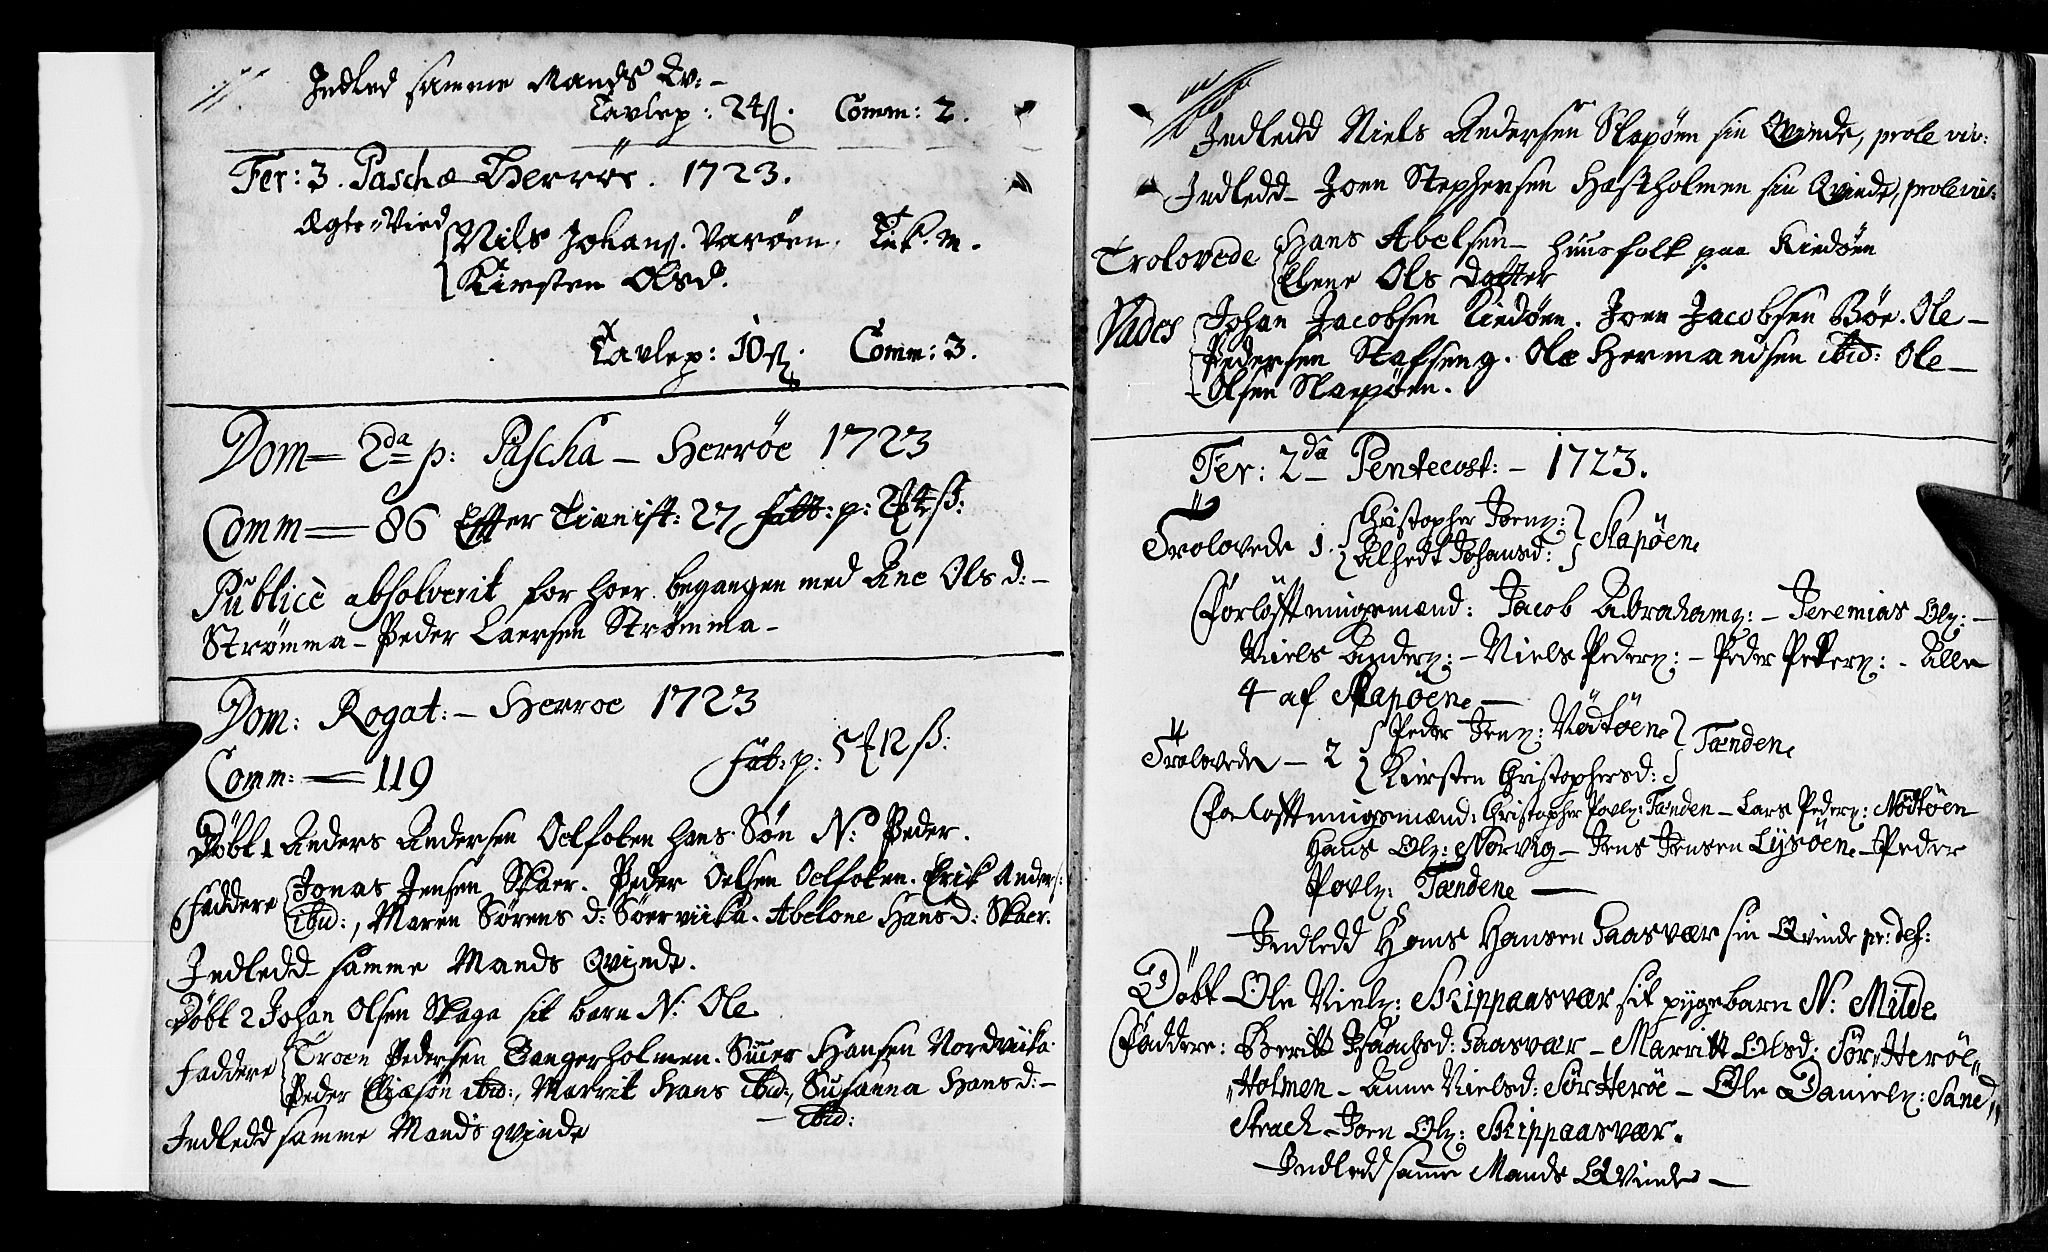 Indled samme Mands Qv: –
Tavlep: 24 ß. Comm: 2.
Fer: 3. Paschæ Herröe. 1723.
Ægte-Vied Nils Johans. Varöen.
Kirsten Olsd.
Tavlep: 10 ß. Comm: 3.
Dom = 2da p: Pascha – Herröe 1723
Comm = 86 Efter 27
Publicè absolverit for hoer begangen med Ane Ols d: –
Strömma – Peder Laersen Strömma –
Dom: Rogat: – Herroe 1723
Comm: = 119 Tab: p: 12 ß:
Döbt 1 Anders Andersen Oelfoten hans Sön N: Peder.
Faddere Jonas Jensen Skaer. Peder Oelsen Oelfoten. Erik Anders:
ibid:, Maren Sörens d: Söerviika. Abelone Hans d: Skaer.
Indledd samme Mands Qvinde.
Döbt 2 Johan Olsen Skaga sit barn N: Ole
Faddere Troen Pedersen Tangerholmen. Hansen Nordviika.
Peder Eliæsön ibid:, Marrit Hans ibid:, Susanna Hans d: –
– ibid:
Indledd samme Mands qvinde
Indledd Niels Andersen Slapöen sin Qvinde, prole viv:
Indledd Joen Stephensen Hæstholmen sin Qvinde, prole viv:
Trolovede Hans Abelsen – huusfolk paa Kiedöen
Elene Ols Dotter
Vades Johan Jacobsen Kiedöen. Joen Jacobsen Böe. Ole –
Pedersen Stafseng. Ole Hermandsen ibid: Ole –
Olsen Slapöen.
Fer: 2da Pentecost: – 1723.
Trolovede 1. Christopher Joens: Slapöen
Alhedt Johansd:
Forlöftningsmænd: Jacob Abrahams: – Jeremias Ols: –
Niels Anders: – Niels Peders: – Peder Peters: – Alle
4 af Slapöen –
Trolovede – 2 Peder Jens: Nödtöen Tænden
Kirsten Christophersd:
Forlöftningsmænd: Christopher Povls: Tænden – Lars Peders: Nödtöen
Hans Ols: Norvig – Jens Jensen Lysöen – Peder
Povls: Tænden –
Indledd Hans Hansen Gaasvær sin Qvinde pr: def:
Döbt Ole Niels: Skippaasvær sit pygebarn N: Milde
Faddere: Beritt Isaachsd: Gaasvær – Marritt Olsd: Sör Heröe
Holmen – Anne Nielsd: Sör Heröe – Ole Daniels: Sand
Strach – Joen Ols: Skippaasvær.
Indledd samme Mands Qvinde –